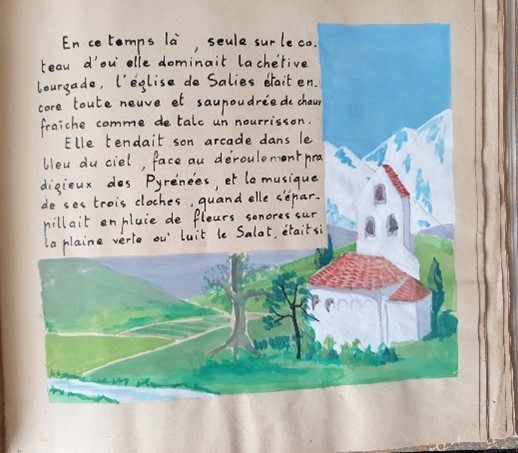 En ce temps là , seule sur le co-
teau d'où elle dominait la chétive
bourgade, l'église de Salies était en-
core toute neuve et saupoudrée de chaux
fraîche comme de talc un nourrisson.
Elle tendait son arcade dans le
bleu du ciel , face au déroulement pro
digieux des Pyrénées, et la musique
de ses trois cloches , quand elle s'épar-
pillait en pluie de fleurs sonores sur
la plaine verte où luit le Salat, était si